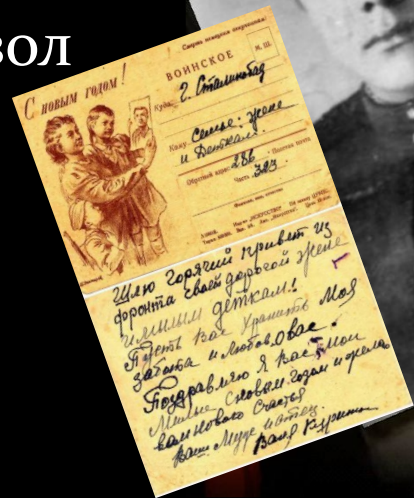 зол
Смерть немецким оккупантам!
С НОВЫМ ГОДОМ!
ВОИНСКОЕ
Н. Ш.
Куда г. Сталинабад
Кому Семье: жене
и Деткам.
Обратный адрес: 286 Полевая почта
Часть 323
Шлю горячий привет из
фронта своей дорогой жене
и милым деткам!
Пусть Вас хранить Моя
забота и Любов, о Вас.
Поздравляю я Вас мои
Милые с новым годом и желаю
вам нового счастья
Ваш Муж и отец.
Ваня